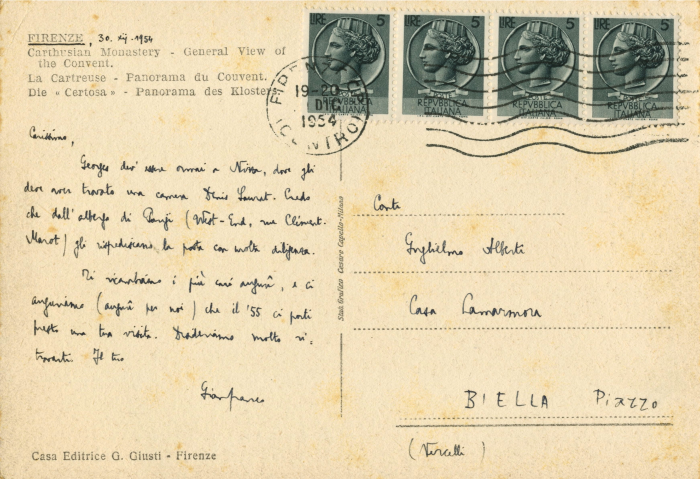 FIRENZE, 30. xij. 1954
Carthusian Monastery - General View of
the Convent.
La Cartreuse - Panorama du Couvent.
Die « Certosa » - Panorama des Klosters
LIRE 5 LIRE 5 LIRE 5 LIRE 5
POSTE POSTE POSTE POSTE
REPVBBLICA ITALIANA REPVBBLICA ITALIANA REPVBBLICA ITALIANA REPVBBLICA ITALIANA
19-20
DIC
1954
Carissimo,
Georges dev'essere ormai a Nizza, dove gli
deve aver trovato una camera Denis Lauret. Credo
che dall'albergo di Parigi (West-End, rue Clément-
Marot) gli rispediscano la posta con molta diligenza.
Ti ricambiamo i più cari auguri, e ci
auguriamo (auguri per noi) che il '55 ci porti
presto una tua visita. Desideriamo molto ri-
trovarti. Il tuo
Gianfranco
Casa Editrice G. Giusti - Firenze
Stab. Grafico Cesare Capello-Milano
Conte
Guglielmo Alberti
Casa Lamarmora
BIELLA Piazzo
(Vercelli)